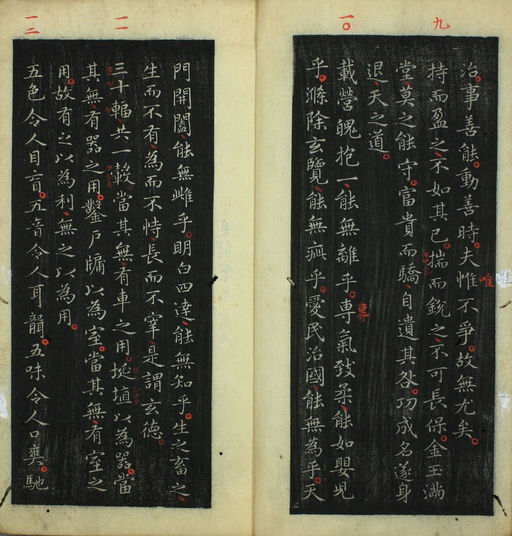 九
治事善能動善時夫惟不爭故無尤矣
持而盈之不如其已揣而銳之不可長保金玉滿
堂莫之能守富貴而驕自遺其咎功成名遂身
退天之道
一〇
載營魄抱一能無離乎專氣致柔能如嬰兒
乎滌除玄覽能無疵乎愛民治國能無為乎天
門開闔能無雌乎明白四達能無知乎生之畜之
生而不有為而不恃長而不宰是謂玄德
一一
三十輻共一轂當其無有車之用埏埴以為器當
其無有器之用鑿戶牖以為室當其無有室之
用故有之以為利無之以為用
一二
五色令人目盲五音令人耳聾五味令人口爽馳
唯
專